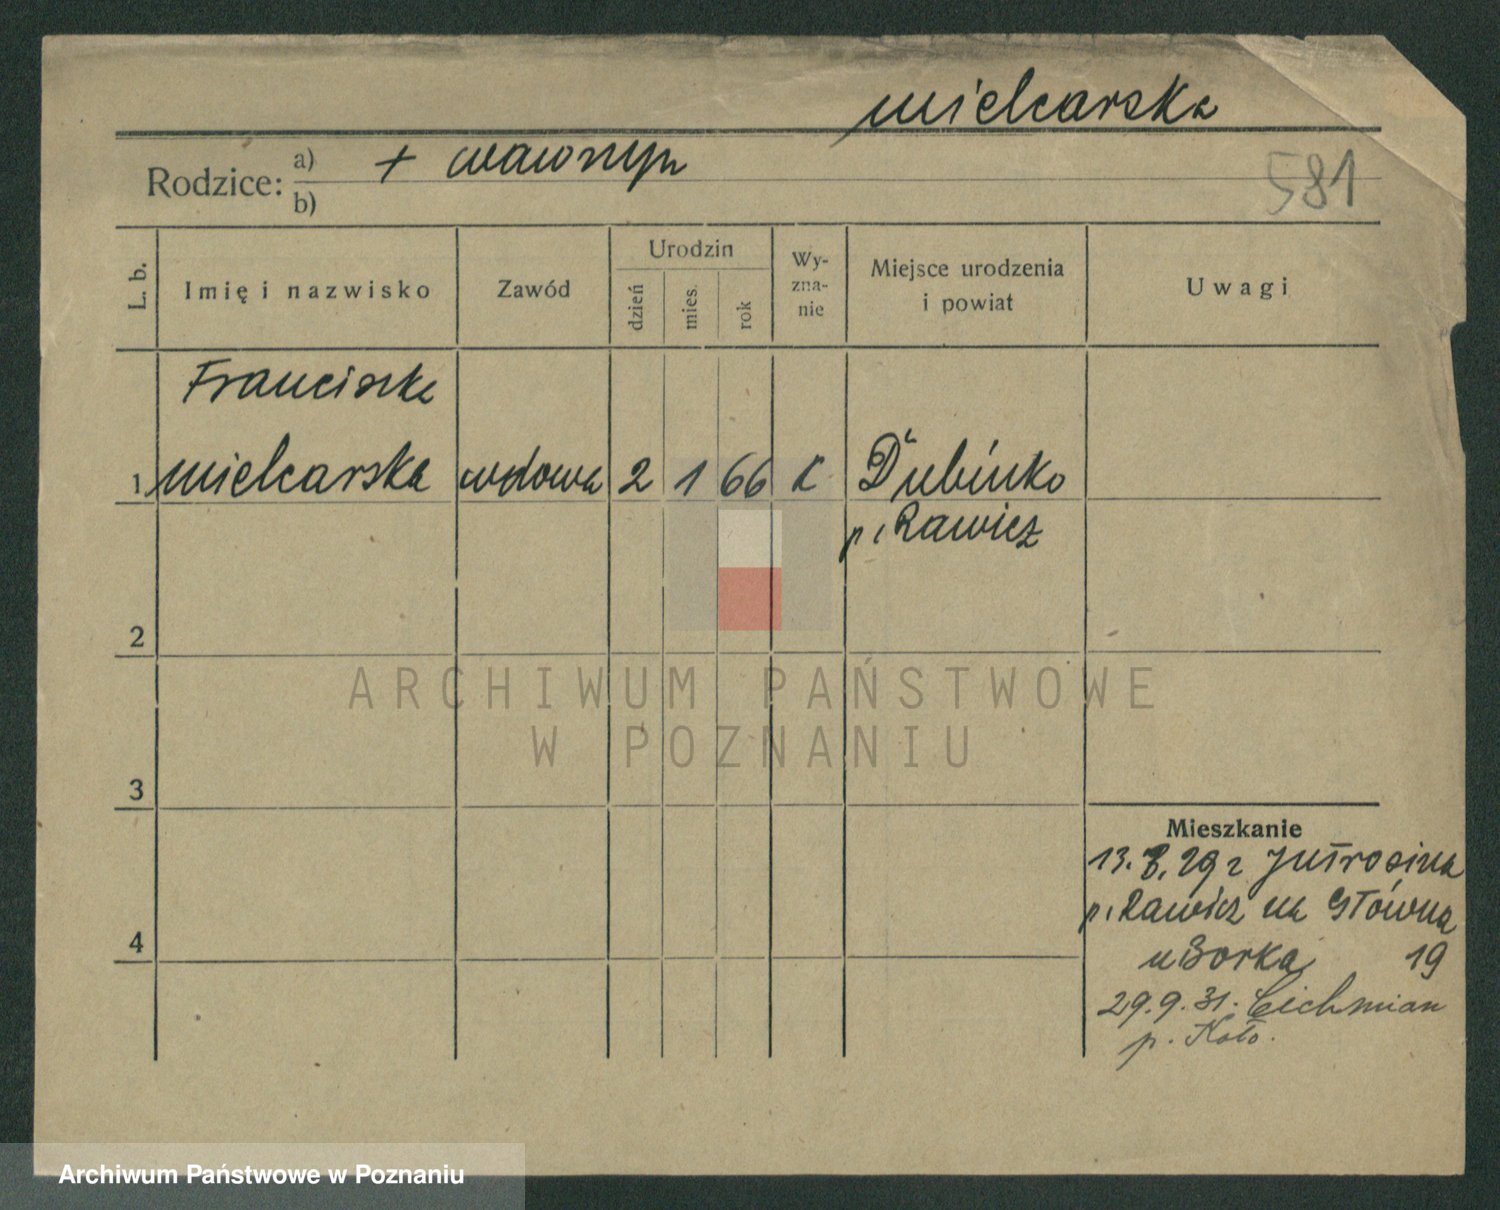 Mielcarska
Rodzice: a) + Wawrzyn
b)
581
L. b. Imię i nazwisko Zawód Urodzin dzień mies. rok Wy-zna-nie Miejsce urodzenia i powiat Uwagi
Franciszka
1 Mielcarska wdowa 2 1 66 K Dubinko
p. Rawicz
2
ARCHIWUM PAŃSTWOWE
W POZNANIU
3
Mieszkanie
13. 8. 29 r Jutrosina
p. Rawicz na Główna
u Borka 19
4
29. 9. 31. Cichmian
p. Koło.
Archiwum Państwowe w Poznaniu